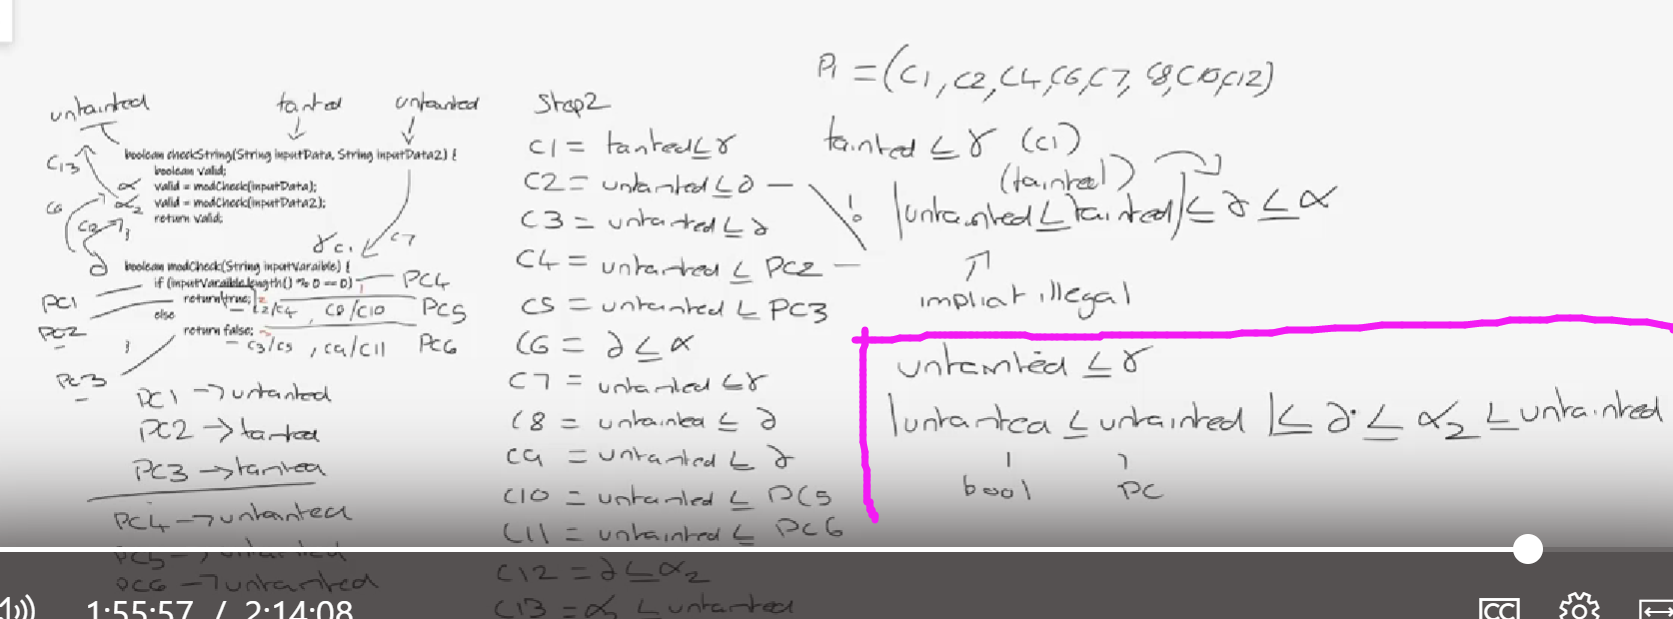 untainted tainted untainted
C13
boolean checkString(String inputData, String inputData2) {
boolean valid;
α valid = modCheck(inputData);
α2 valid = modCheck(inputData2);
return valid;
C6
γ C1 C7
∂ boolean modCheck(String inputVaraible) {
if (inputVaraible.length() % 0 == 0) PC4
PC1 return true; C2/C4, C8/C10 PC5
else
PC2 return false; C3/C5, C9/C11 PC6
PC3
PC1 → untainted
PC2 → tainted
PC3 → tainted
PC4 → untainted
PC5 → untainted
PC6 → untainted
Step2
C1 = tainted ≤ γ
C2 = untainted ≤ ∂
C3 = untainted ≤ ∂
C4 = untainted ≤ PC2
C5 = untainted ≤ PC3
C6 = ∂ ≤ α
C7 = untainted ≤ γ
C8 = untainted ≤ ∂
C9 = untainted ≤ ∂
C10 = untainted ≤ PC5
C11 = untainted ≤ PC6
C12 = ∂ ≤ α2
C13 = α2 ≤ untainted
P1 = (C1, C2, C4, C6, C7, C8, C10, C12)
tainted ≤ γ (C1)
(tainted)
|untainted ≤ tainted| ≤ ∂ ≤ α
implicit illegal
untainted ≤ γ
|untainted ≤ untainted| ≤ ∂ ≤ α2 ≤ untainted
bool PC
1:55:57 / 2:14:08
CC